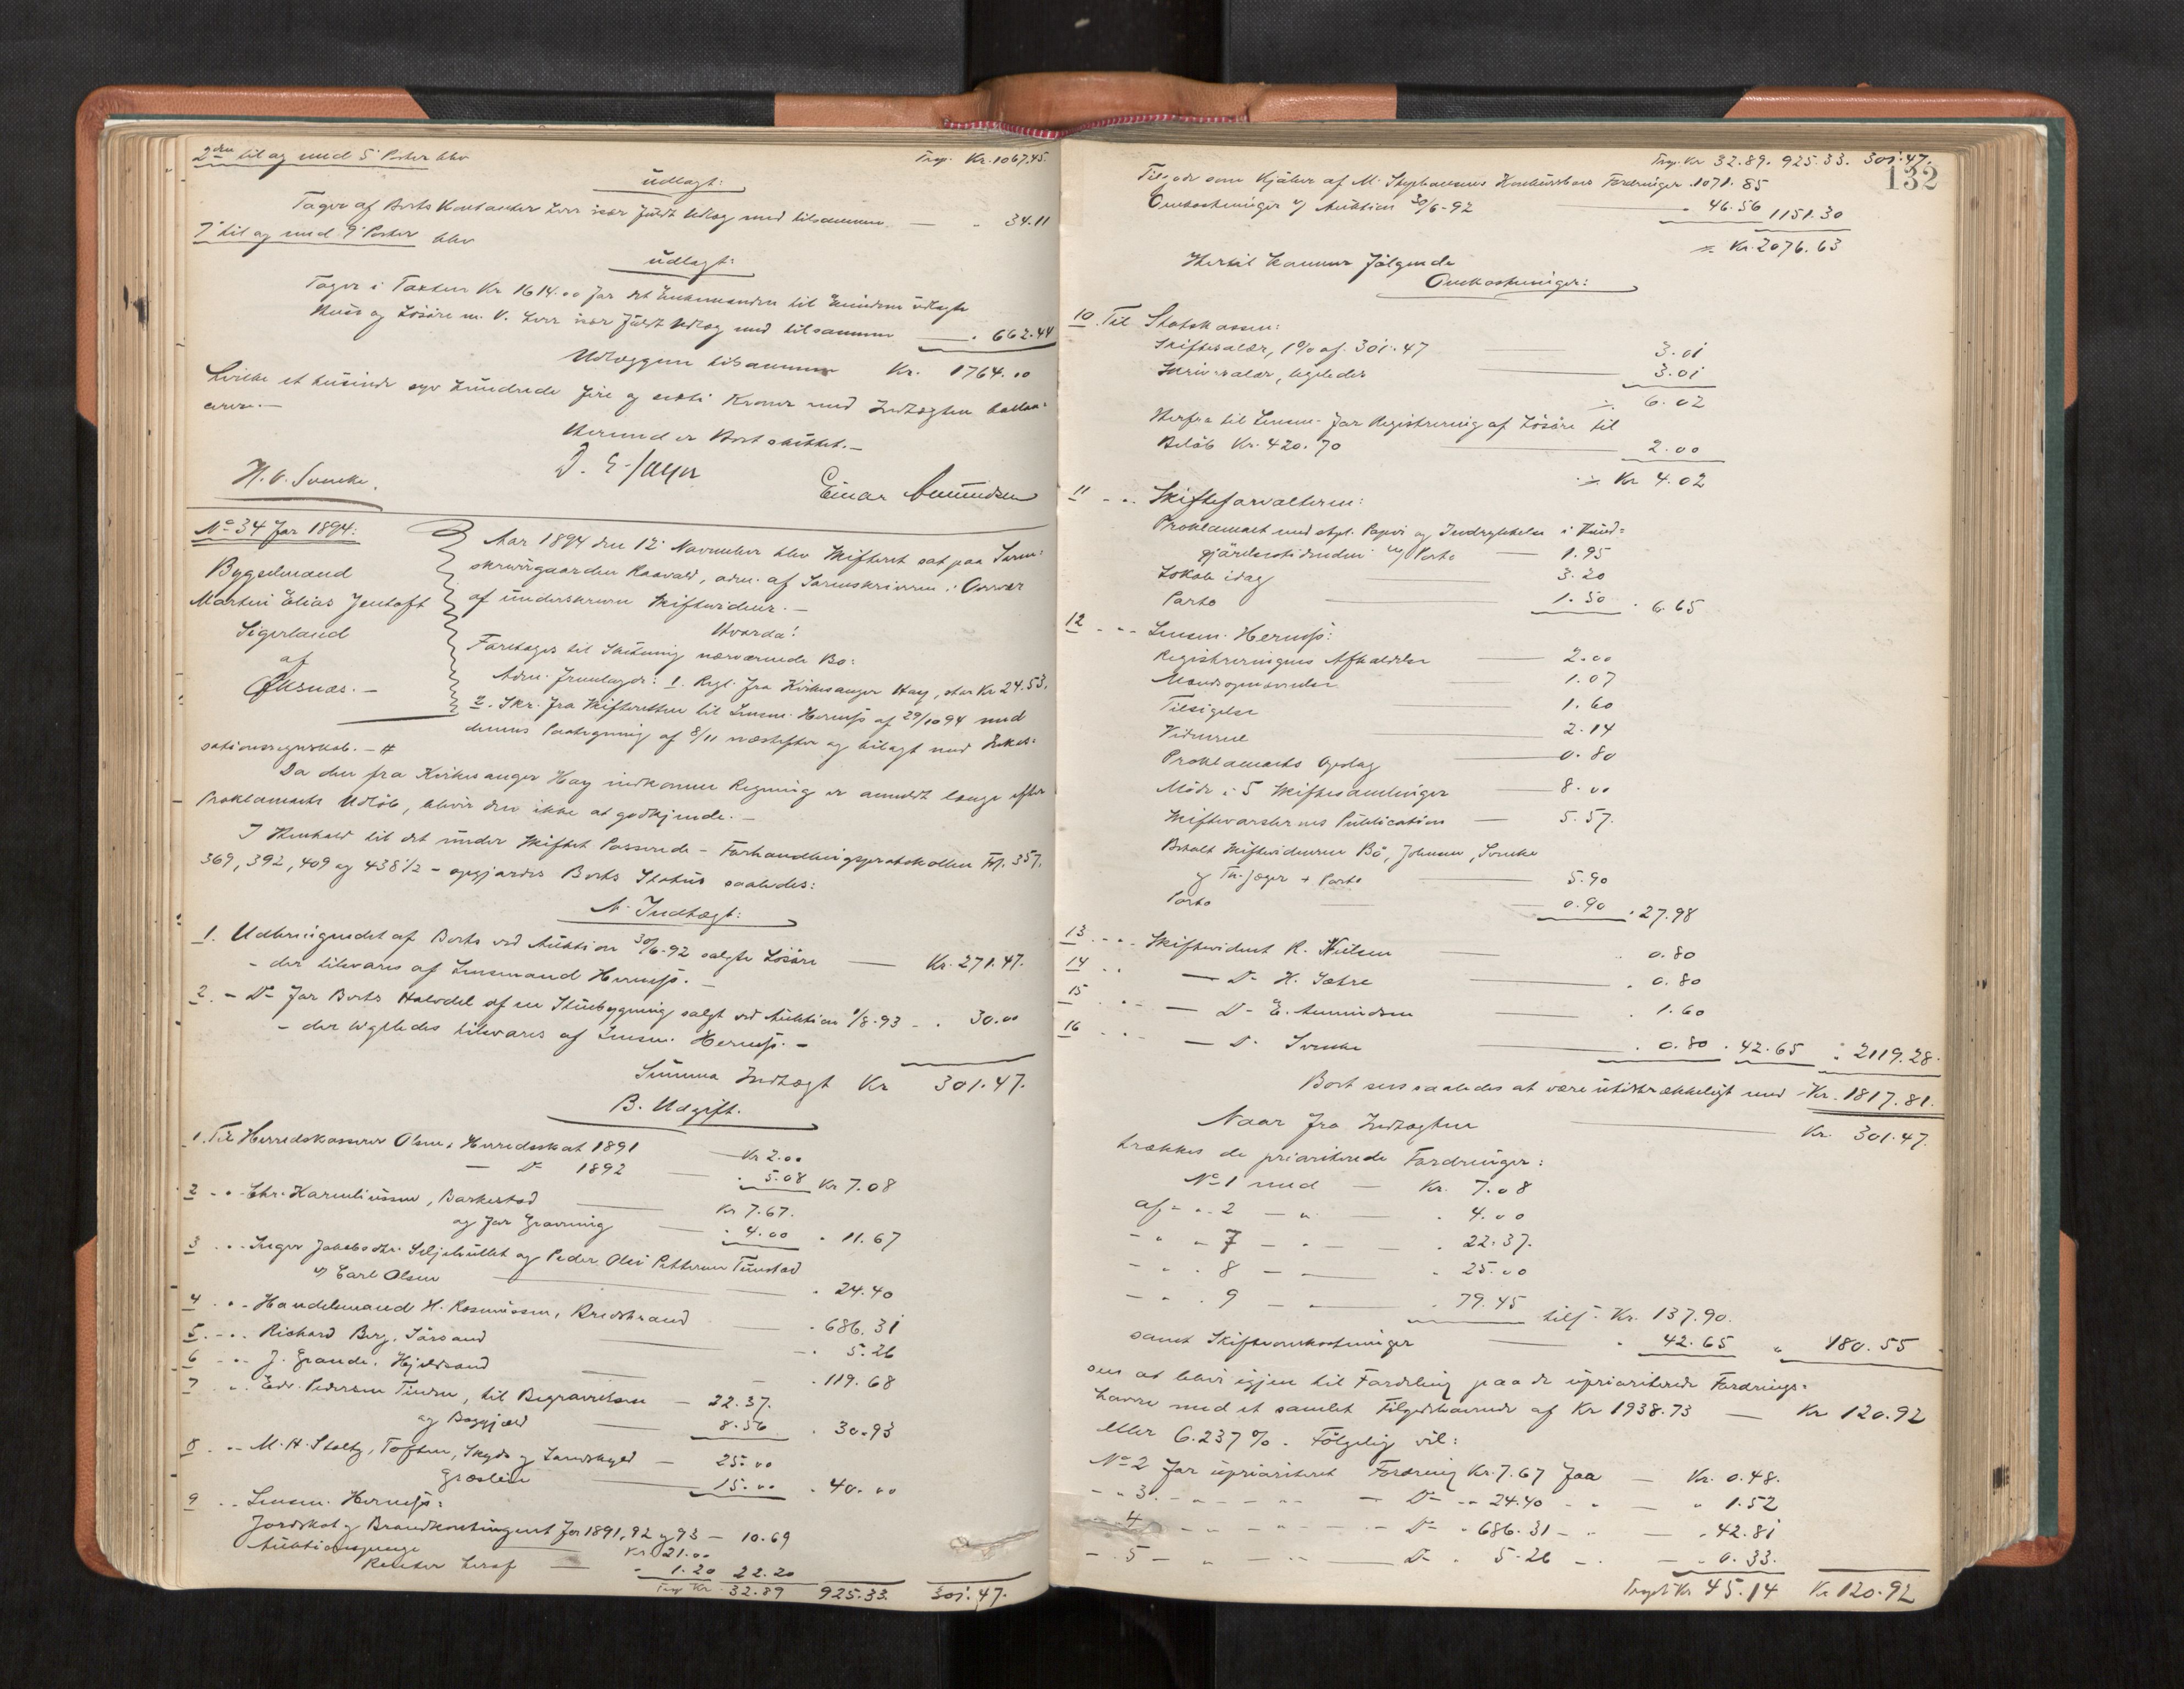 2den til og med 5' Poster blev Trsp. Kr. 1067.45.
Udlagt:
Tages af Boets Kontanter hvor især fuldt Udlæg med tilsammen — " 34.11
7' til og med 9' Poster blev
Udlagt:
Tages i Taxten Kr 1614.00 for det Enkemanden til Eiendom udlagte
Huse og Løsøre m. V. hver især fuldt Udlæg med tilsammen — " 662.44
Udlæggene tilsammen Kr. 1764.00
hvilke et tusinde syv hundrede fire og seksti Kroner med Indtægten balan-
cerer.—
Hermed er Boet sluttet.—
H. O. Svenke.
Einar Amundsen
No 34 for 1894:
Bygselmand
Martin Elias Jentoft
Sigerland
af
Øksnæs.—
Aar 1894 den 12' November blev Skifteret sat paa Soren-
skrivergaarden Raavald, adm. af Sorenskriveren i Overvær
af underskrevne Skiftevidner.—
Hvorda!
Foretages til Slutning nærværende Bo:
Adm. fremlagde: 1. Regl. fra Kirkesanger Hay, stor Kr 24.53.
2. Skr. fra Skifteretten til Lensm. Hernes af 29/10 94 med
dennes Paategning af 8/11 næstefter og bilagt med Inkas-
sationsregnskab.— #
Da den fra Kirkesanger Hay indkomne Regning er anmeldt længe efter
Proklamaets Udløb, bliver den ikke at godkjende.—
I Henhold til det under Skiftet Passerede – Forhandlingsprotokollen Fol. 357,
369, 392, 409 og 438 1/2 – opgjordes Boets Status saaledes:
A. Indtægt:
1. Udbringendet af Boets ved Auktion 30/6-92 solgte Løsøre — Kr. 271.47.
– der tilsvares af Lensmand Hernes.—
2. – Do for Boets Halvdel af en Stuebygning solgt ved Auktion 1/8-93 – " 30.00
– der ligeledes tilsvares af Lensm. Hernes.—
Summa Indtægt Kr 301.47.
B. Udgift.
1. Til Herredskasserer Olsen, Herredsskat 1891 — Kr 2.00
— Do 1892 — " 5.08 Kr 7.08
2 . " Chr. Karneliussen, Barkestad — Kr 7.67.
og for Gravning — " 4.00 " 11.67
3 . . . Inger Jakobsdtr. Seljehullet og Peder Olai Pettersen Tunstad
v/ Carl Olsen — " 24.40
4 . " Handelsmand H. Rasmussen, Bredstrand — " 686.31
5. . . Richard Berg, Sørsand — " 5.26
6 . . J. Grande, Hjeldsand — " 119.68
7 . . Edv. Pedersen Tinden, til Begravelsen — 22.37.
og Boggjæld — 8.56 " 30.93
8 . . M. H. Stoltz, Toften, Skyds og Landskyld — 25.00
Græsleie — 15.00 " 40.00
9 . . Lensm. Hernes:
Jordskat og Brandkontingent for 1891, 92 og 93 — 10.69
Auktionspenge — Kr 21.00
Renter heraf — " 1.20 22.20
Trsp Kr 32.89 925.33. 301.47.
132
Trsp. Kr 32.89. 925.33. 301.47.
Tilgode som Kjøber af M. Stephansens Konkursboes Fordringer 1071.85
Omkostninger v/ Auktion 30/6-92 — " 46.56 1151.30
÷ Kr. 2076.63
Hertil kommer følgende
Omkostninger:
10. Til Statskassen:
Skiftesalær, 1 % af 301.47 — 3.01
Skriversalær, ligeledes — 3.01
÷ 6.02
Herfra til Lensm. for Registrering af Løsøre til
Beløb Kr. 420.70 — 2.00
÷ Kr 4.02
11 . . . Skifteforvalteren:
Proklamaet med stpl. Papir og Indrykkelse i Kund-
gjørelsestidenden m/ Porto — 1.95
Lokale idag 3.20
Porto — 1.50 . 6.65
12 . . . Lensm. Hernes:
Registreringens Afholdelse — 2.00
Mandsopnævnelse — 1.07
Tilsigelse 1.60
Vidnerne — 2.14
Proklamaets Opslag — 0.80
Møde i 5 Skiftesamlinger — 8.00
Skiftevarslernes Publication — 5.57.
Betalt Skiftevidnerne Bø, Johnsen, Svenke
og Th. Jæger + Porto — 5.90
Porto — 0.90 . 27.98
13 . . . Skiftevidnet R. Nielsen — " 0.80
14 . . — Do H. Sætre — " 0.80
15 . . — Do E. Amundsen " 1.60
16 . . — Do Svenke — " 0.80 . 42.65 ÷ 2119.28.
Boet sees saaledes at være utilstrækkeligt med Kr. 1817.81.
Naar fra Indtægten — Kr. 301.47.
trækkes de prioriterede Fordringer:
No 1 med — Kr. 7.08
af " . 2 — " — . 4.00
- " - 7 — " — . 22.37.
- " . 8 — — " 25.00
- " . 9 — — . 79.45 tils. Kr. 137.90.
samt Skifteomkostninger — " 42.65 " 180.55
sees at blive igjen til Fordeling paa de uprioriterede Fordrings-
havere med et samlet Tilgodehavende af Kr 1938.73 — Kr 120.92
eller 6.237 %. Følgelig vil:
No 2 for uprioriteret Fordring Kr. 7.67 faa — Kr. 0.48.
- - 3. - - - - — Do - - 24.40 - " — " 1.52
- - 4 - - - - — Do . 686.31 - . — . 42.81
- . 5 - - - - — Do . 5.26 - . — . 0.33.
Trspt Kr 45.14 Kr 120.92